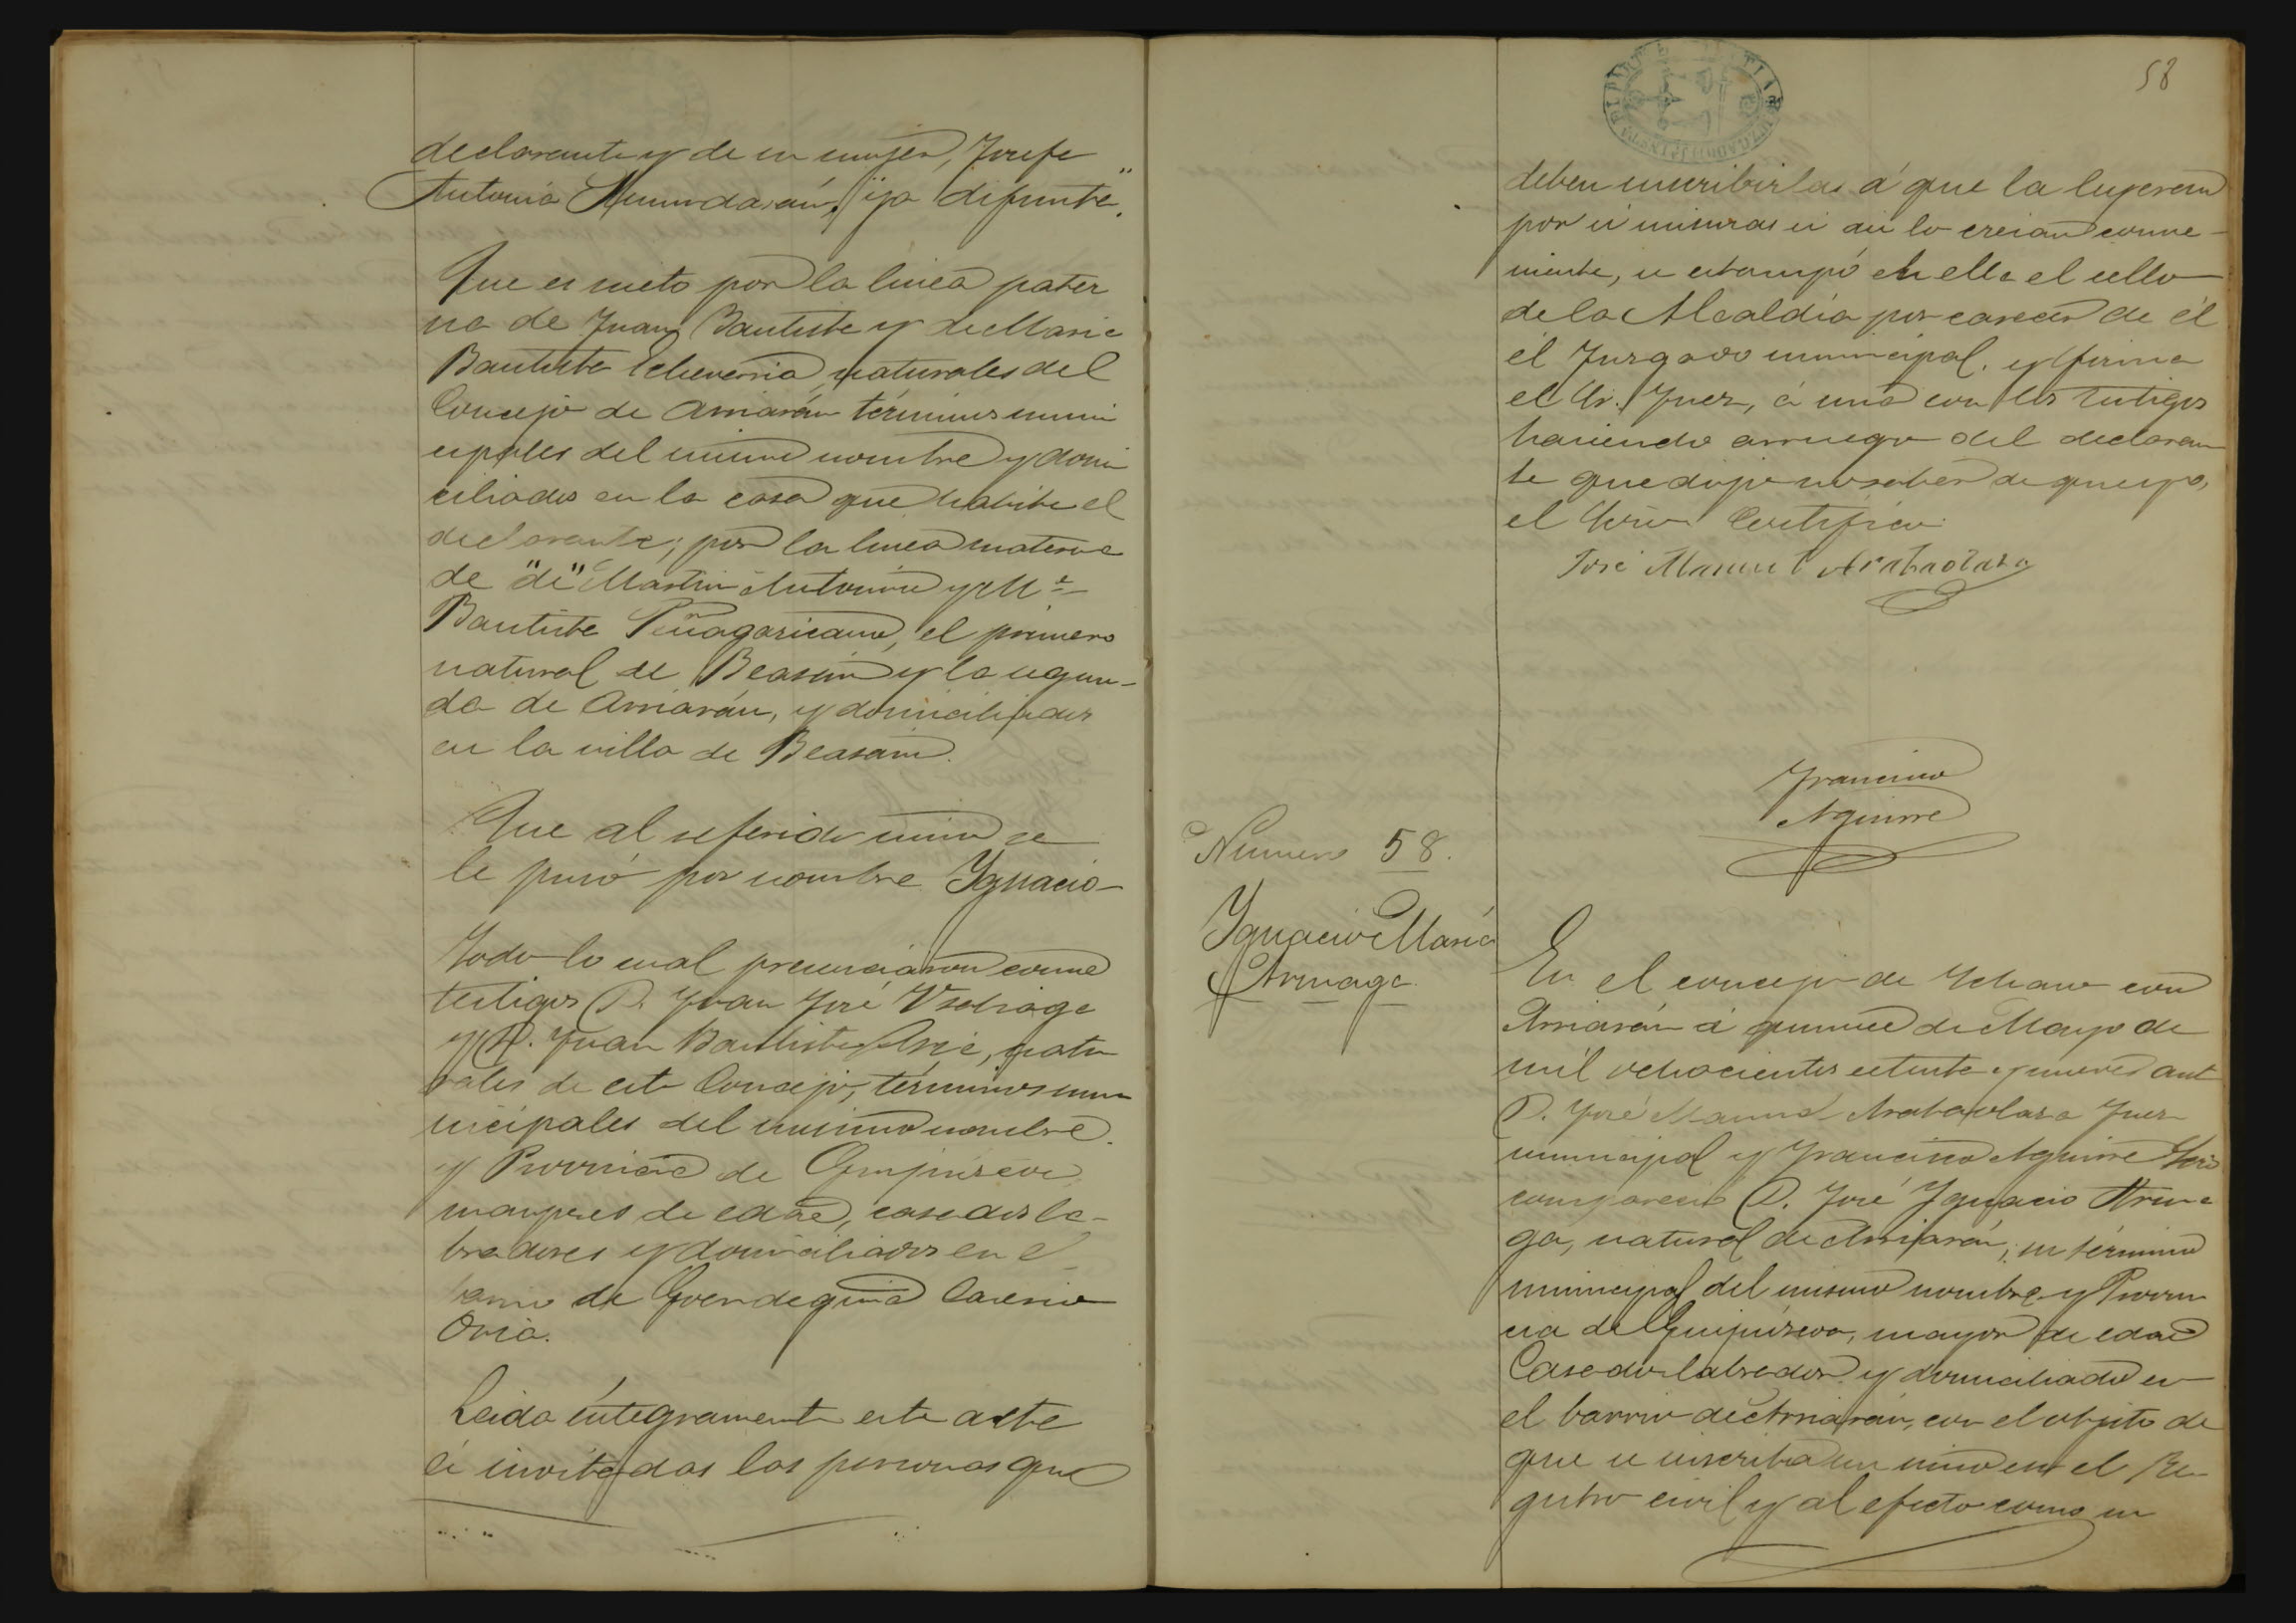 declarante y de su mujer, Josefa
Antonia Amundarain, "ya difunta".
Que es nieto por la linea pater
na de Juan Bautista y de Maria
Bautista Echeverria, naturales del
Concejo de Arriarán términos muni
cipales del mismo nombre y domi
ciliados en la casa que habita el
declarante; por la linea materna
de "de" Martin Antonio y Mª
Bautista Peñagaricano, el primero
natural de Beasain y la segun-
da de Arriarán, y domiciliados
en la villa de Beasain.
Que al referido niño se
le puso por nombre Ygnacio
Todo lo cual presenciaron como
testigos D. Juan José
y D. Juan Bautista, natu
rales de este Concejo, términos mu
nicipales del mismo nombre
y Provincia de Guipúzcoa
mayores de edad, casados la-
bradores y domiciliados en el
barrio de Caserio
Oria.
Leida íntegramente esta acta
é invitadas las personas que
58
deben suscribirlas á que la leyeran
por si mismas si asi lo creian conve-
niente, se estampó en ella el sello
de la Alcaldia por carecer de él
él Juzgado municipal. y firma
el Sr. Juez, á una con los testigos
haciendo arruego del declaran
te que dijo no saber de que yo,
el Srio Certifico
José Manuel Arabaolaza
Francisco
Aguirre
Numero 58.
Ygnacio Maria
Arruaga
En el concejo de Ychaso con
Arriarán á quince de Mayo de
mil ochocientos setenta y nueve ant
D. José Manuel Arabaolaza Juez
municipal y Francisco Aguirre Srio
compareció D. José Ygnacio Arrua
ga, natural de Arriarán, su término
municipal del mismo nombre y Provin
cia de Guipúzcoa, mayor de edad
Casado labrador y domiciliado en
el barrio de Arriarán, con el objeto de
que se inscriba un niño en el Re
gistro civil y al efecto como su